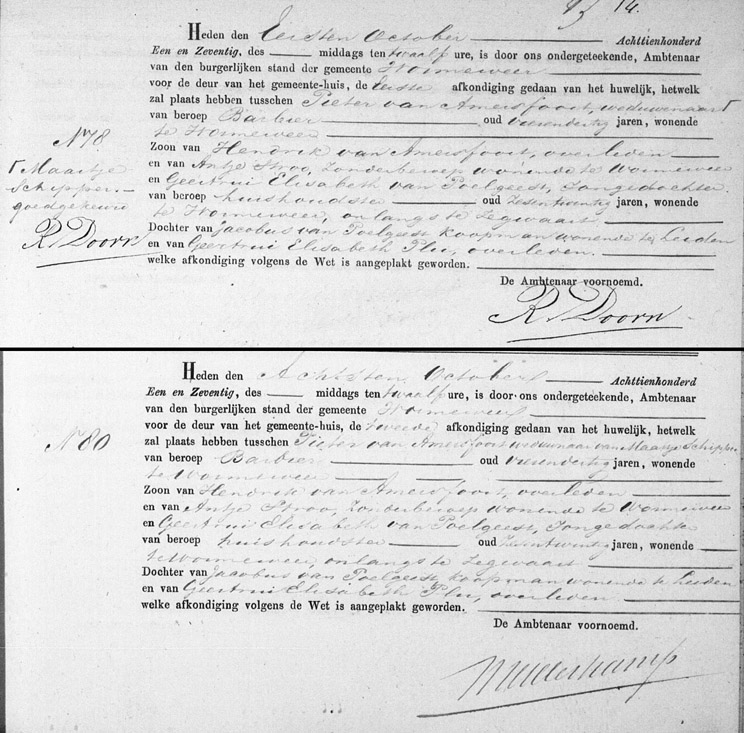 13 14.
Heden den Eersten October Achttienhonderd
Een en Zeventig, des middags ten twaalf ure, is door ons ondergeteekende, Ambtenaar
van den burgerlijken stand der gemeente Wormerveer
voor de deur van het gemeente-huis, de eerste afkondiging gedaan van het huwelijk, hetwelk
zal plaats hebben tusschen Pieter van Amersfoort, weduwenaar Γ
van beroep Barbier oud vierendertig jaren, wonende
te Wormerveer
Zoon van Hendrik van Amersfoort, overleden
en van Antje Stroo, Zonder beroep wonende te Wormerveer
en Geertrui Elisabeth van Poelgeest, Jongedochter
van beroep huishoudster oud Zesentwintig jaren, wonende
te Wormerveer, onlangs te Zegwaart
Dochter van Jacobus van Poelgeest koopman wonende te Leiden
en van Geertrui Elisabeth Plu, overleden.
welke afkondiging volgens de Wet is aangeplakt geworden.
De Ambtenaar voornoemd.
R Doorn
No 78
Γ Maartje
Schipper
goedgekeurd
R Doorn
Heden den Achtsten October Achttienhonderd
Een en Zeventig, des middags ten twaalf ure, is door ons ondergeteekende, Ambtenaar
van den burgerlijken stand der gemeente Wormerveer
voor de deur van het gemeente-huis, de tweede afkondiging gedaan van het huwelijk, hetwelk
zal plaats hebben tusschen Pieter van Amersfoort weduwnaar van Maartje Schipper
van beroep Barbier oud vierendertig jaren, wonende
te Wormerveer
Zoon van Hendrik van Amersfoort, overleden
en van Antje Stroo, Zonder beroep wonende te Wormerveer
en Geertrui Elisabeth van Poelgeest, Jongedochter
van beroep huishoudster oud Zesentwintig jaren, wonende
te Wormerveer, onlangs te Zegwaart
Dochter van Jacobus van Poelgeest, koopman wonende te Leiden
en van Geertrui Elisabeth Plu, overleden
welke afkondiging volgens de Wet is aangeplakt geworden.
De Ambtenaar voornoemd.
No 80